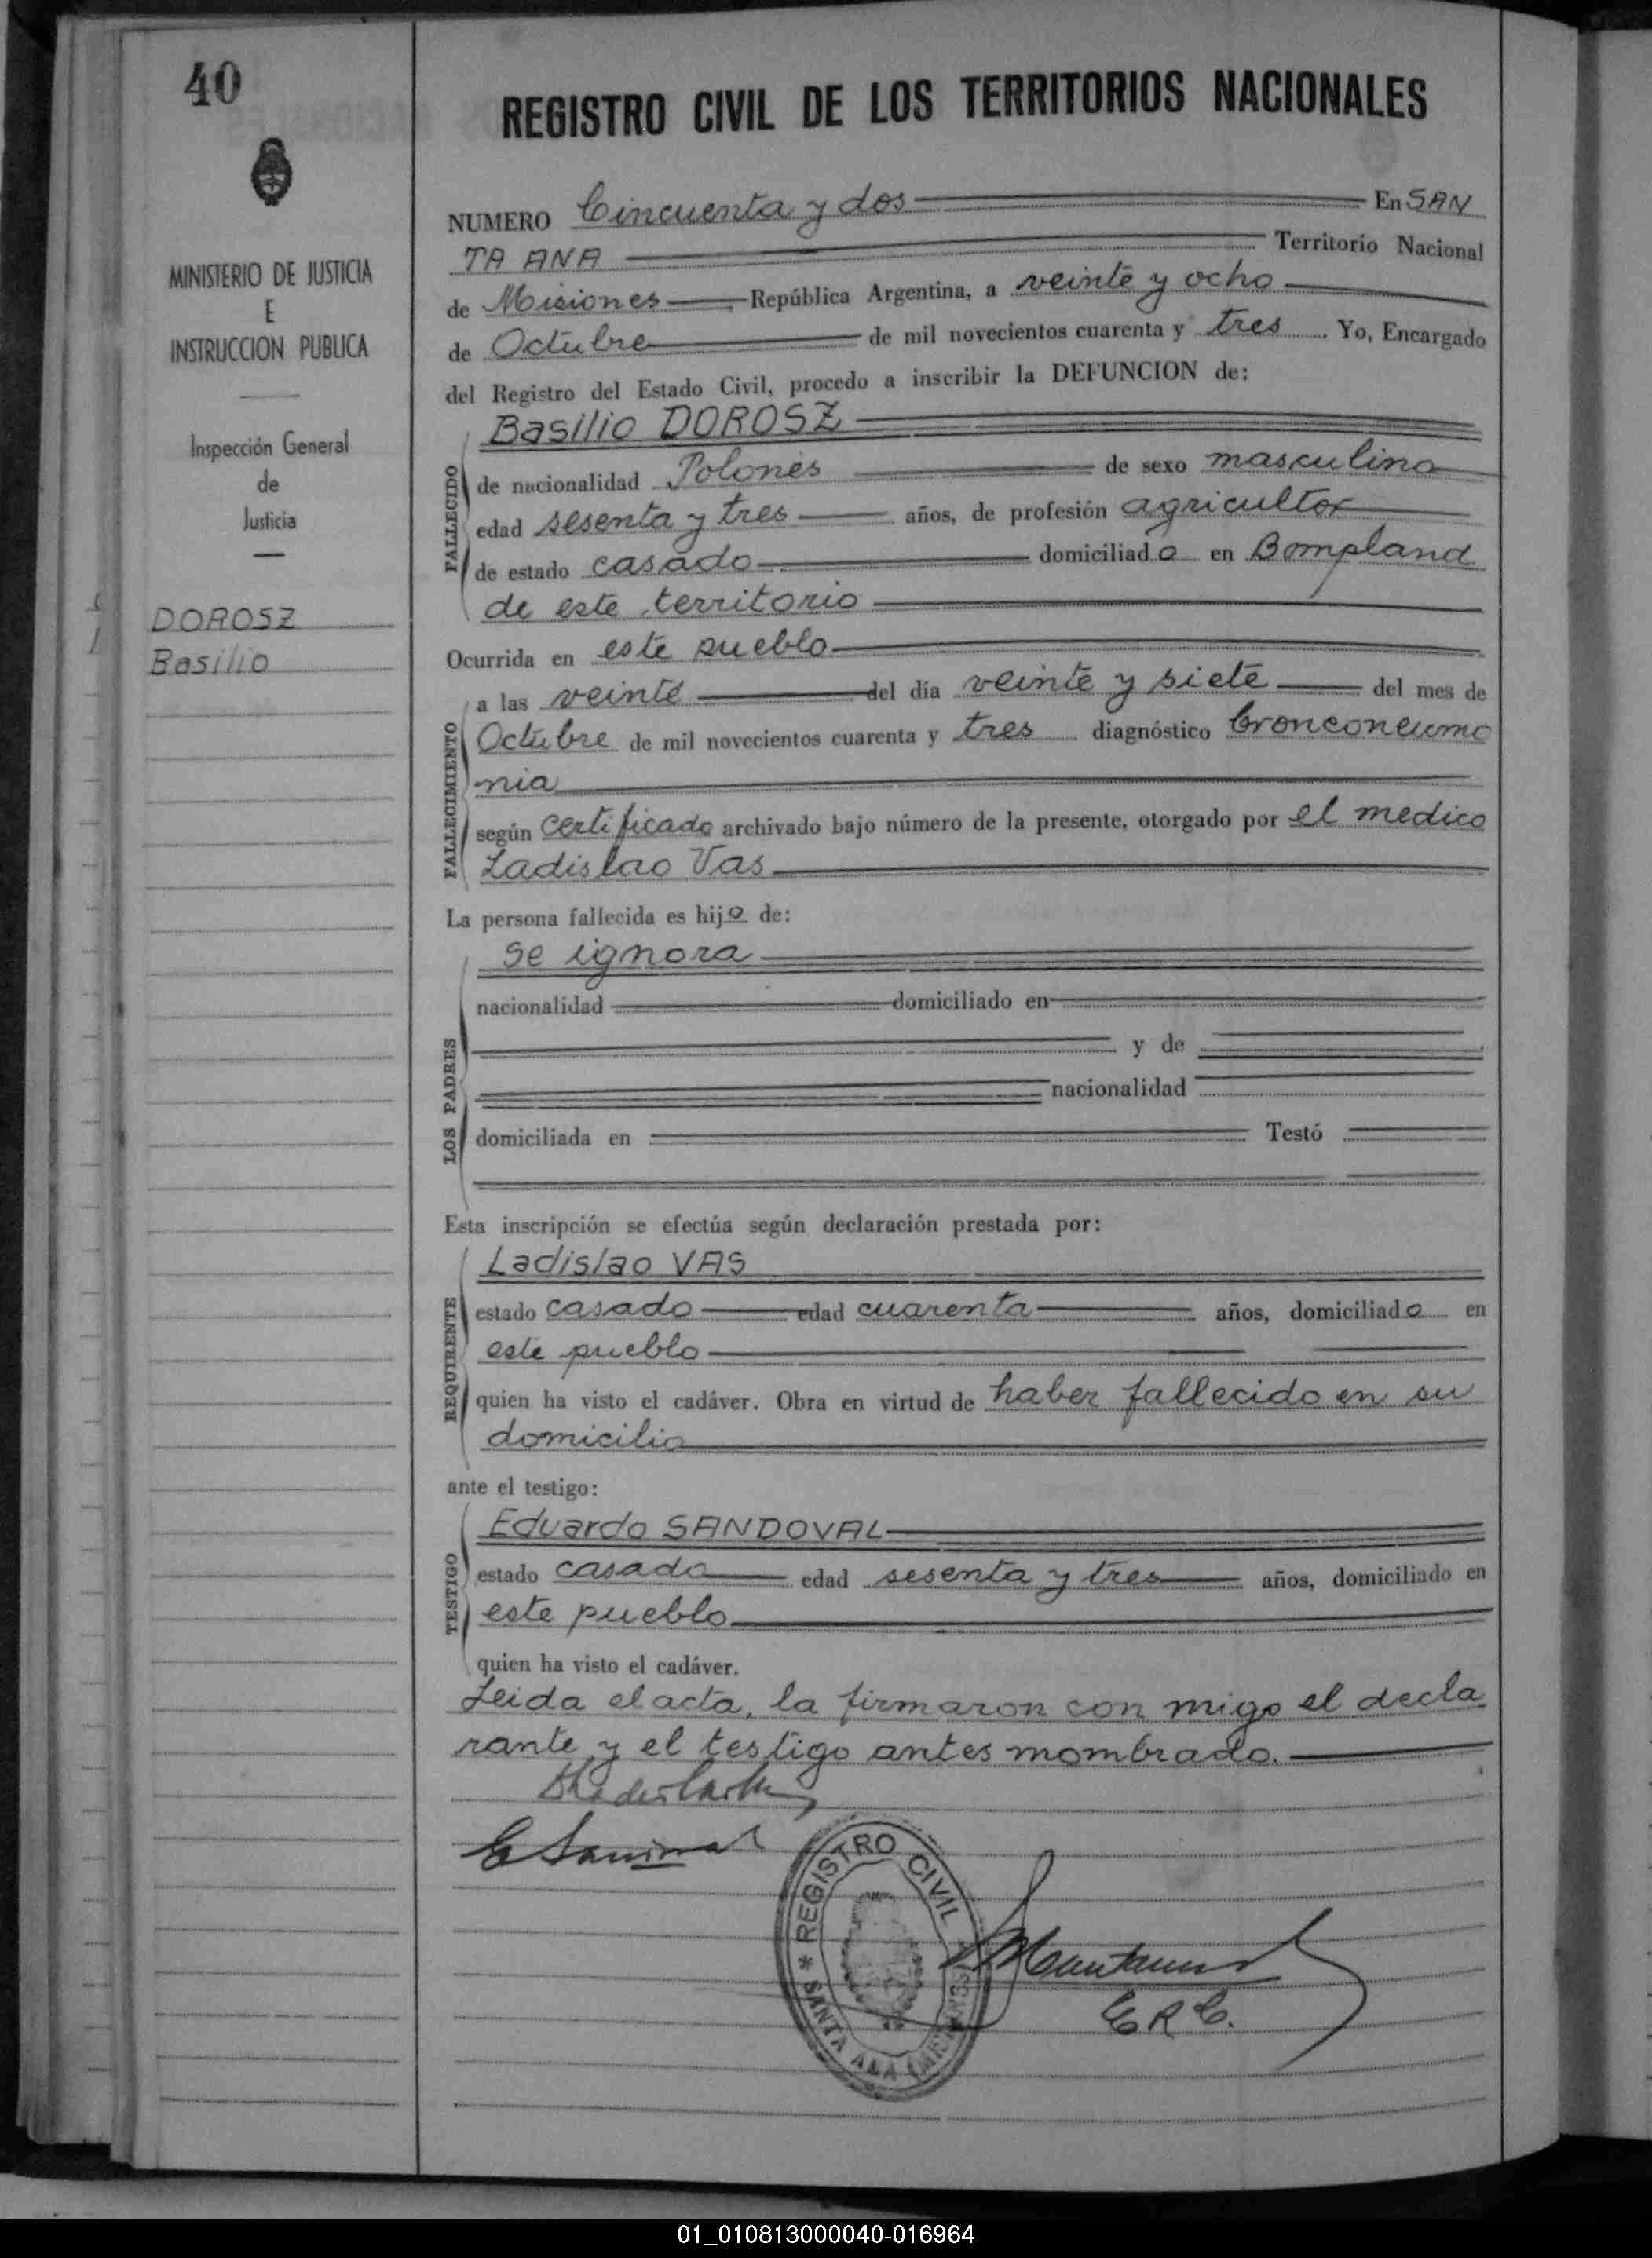 40
MINISTERIO DE JUSTICIA
E
INSTRUCCION PUBLICA
Inspección General
de
Justicia
DOROSZ
Basilio
REGISTRO CIVIL DE LOS TERRITORIOS NACIONALES
NUMERO Cincuenta y dos En SAN
TA ANA Territorio Nacional
de Misiones República Argentina, a veinte y ocho
de Octubre de mil novecientos cuarenta y tres. Yo, Encargado
del Registro del Estado Civil, procedo a inscribir la DEFUNCION de:
Basilio DOROSZ
FALLECIDO
de nacionalidad Polonés de sexo masculino
edad sesenta y tres años, de profesión agricultor
de estado casado domiciliado en Bompland
de este territorio
Ocurrida en este pueblo
FALLECIMIENTO
a las veinte del día veinte y siete del mes de
Octubre de mil novecientos cuarenta y tres diagnóstico bronconeumo
nia
según certificado archivado bajo número de la presente, otorgado por el medico
Ladislao Vas
La persona fallecida es hijo de:
LOS PADRES
se ignora
nacionalidad domiciliado en
y de
nacionalidad
domiciliada en Testó
Esta inscripción se efectúa según declaración prestada por:
REQUIRENTE
Ladislao VAS
estado casado edad cuarenta años, domiciliado en
este pueblo
quien ha visto el cadáver. Obra en virtud de haber fallecido en su
domicilio
ante el testigo:
TESTIGO
Eduardo SANDOVAL
estado casado edad sesenta y tres años, domiciliado en
este pueblo
quien ha visto el cadáver.
Leida el acta, la firmaron con migo el decla
rante y el testigo antes mombrado.
REGISTRO CIVIL
SANTA ANA (MISIONES)
E R C.
01_010813000040-016964